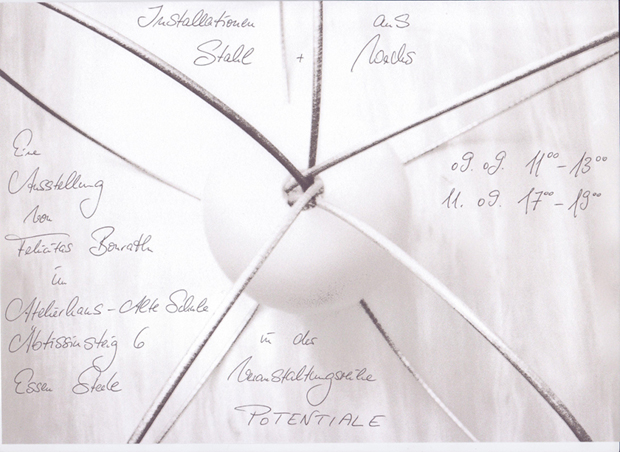 Installationen aus
Stahl + Wachs
Eine
Ausstellung
von
Felicitas Bonrath
in
Atelierhaus - Alte Schule
Äbtissinsteig 6
Essen Steele
09. 09. 11⁰⁰ - 13⁰⁰
11. 09. 17⁰⁰ - 19⁰⁰
in der
Veranstaltungsreihe
POTENTIALE